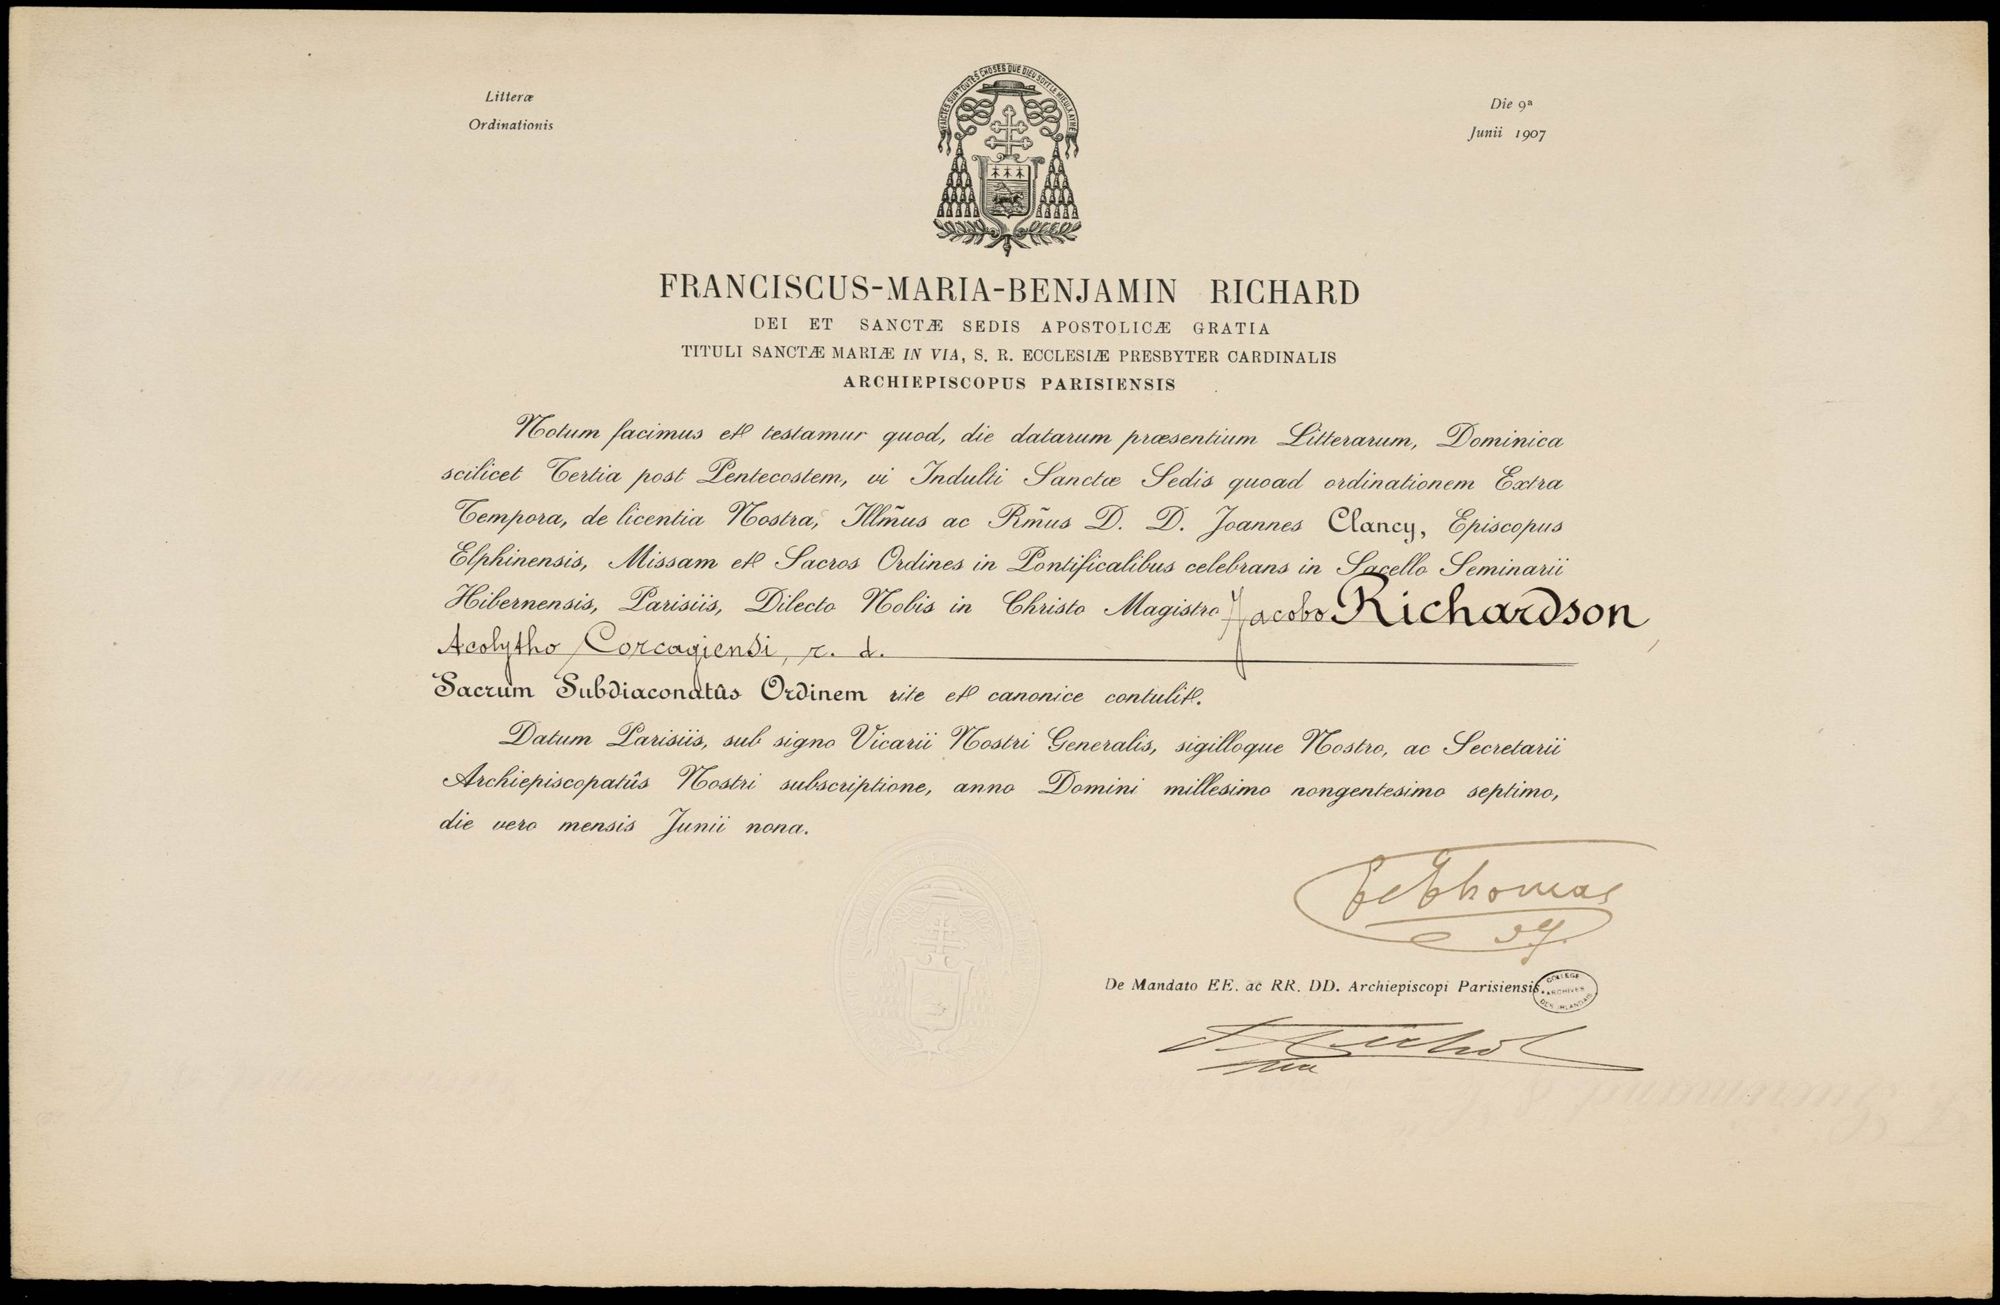 Litteræ
Ordinationis
Die 9ª
Junii 1907
FAICTES SUR TOUTES CHOSES QUE DIEU SOYT LE MIEULX AYMÉ
FRANCISCUS-MARIA-BENJAMIN RICHARD
DEI ET SANCTÆ SEDIS APOSTOLICÆ GRATIA
TITULI SANCTÆ MARIÆ IN VIA, S. R. ECCLESIÆ PRESBYTER CARDINALIS
ARCHIEPISCOPUS PARISIENSIS
Notum facimus et testamur quod, die datarum præsentium Litterarum, Dominica
scilicet Tertia post Pentecostem, vi Indulti Sanctæ Sedis quoad ordinationem Extra
Tempora, de licentia Nostra, Illm̃us ac Rm̃us D. D. Joannes Clancy, Episcopus
Elphinensis, Missam et Sacros Ordines in Pontificalibus celebrans in Sacello Seminarii
Hibernensis, Parisiis, Dilecto Nobis in Christo Magistro Jacobo Richardson,
Acolytho Corcagiensi, r. d.
Sacrum Subdiaconatûs Ordinem rite et canonice contulit.
Datum Parisiis, sub signo Vicarii Nostri Generalis, sigilloque Nostro, ac Secretarii
Archiepiscopatûs Nostri subscriptione, anno Domini millesimo nongentesimo septimo,
die vero mensis Junii nona.
Thomas
De Mandato EE. ac RR. DD. Archiepiscopi Parisiensis
COLLEGE
ARCHIVES
DES IRLANDAIS